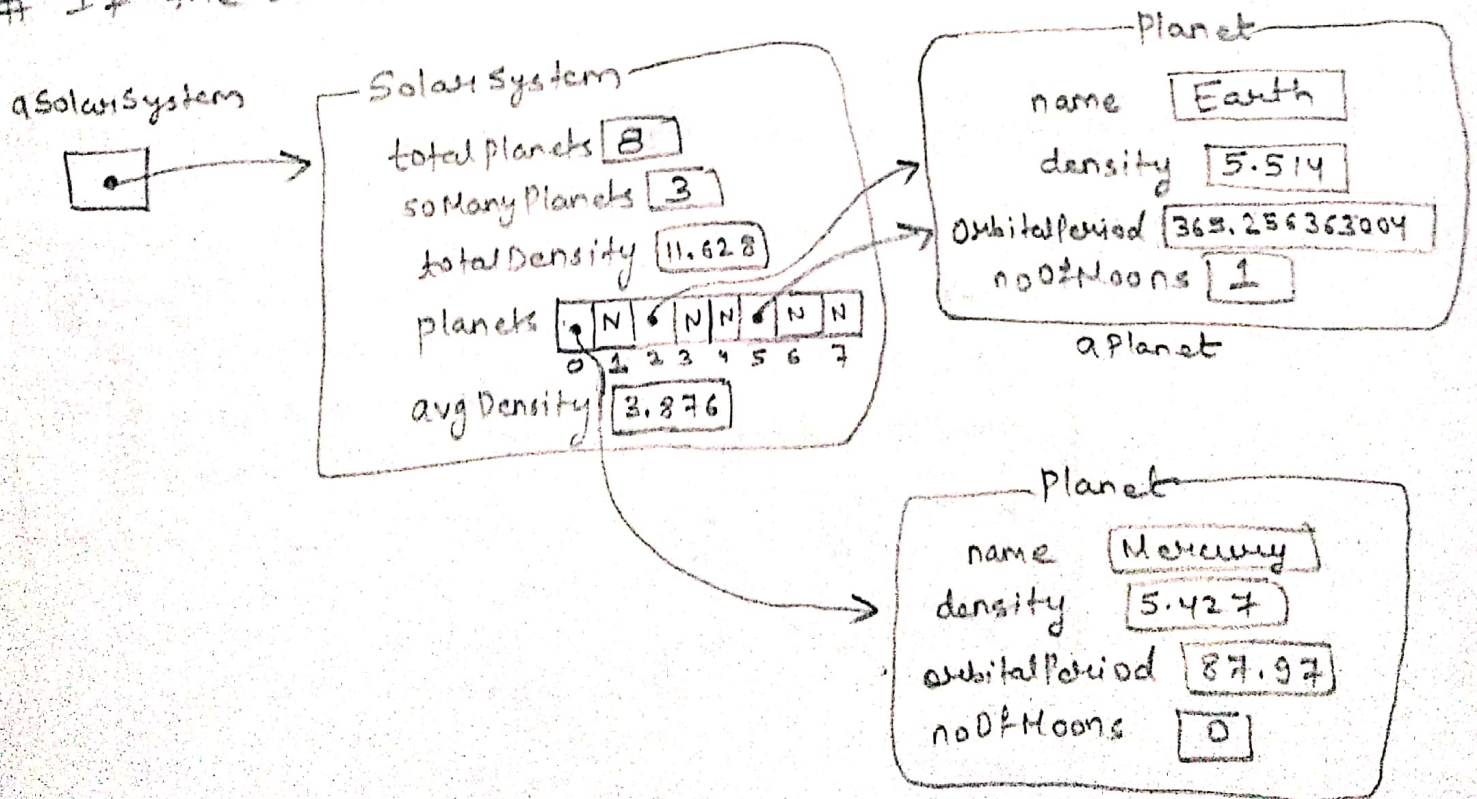 # If the
aSolarSystem
SolarSystem
totalplanets 8
soManyPlanets 3
totalDensity 11.628
planets N N N N N
0 1 2 3 4 5 6 7
avgDensity 3.876
Planet
name Earth
density 5.514
OrbitalPeriod 365.256363004
noOfMoons 1
aPlanet
Planet
name Mercury
density 5.427
orbitalPeriod 87.97
noOfMoons 0